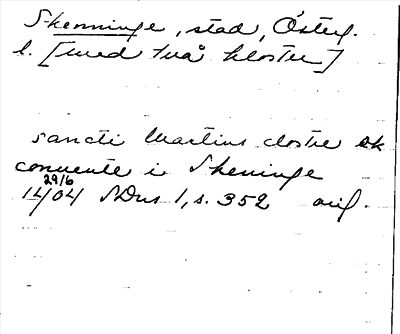 Skenninge, stad, Österg.
l. [med två kloster]
sancti Martins closter ok
conuente i Skeninge
29/6
1404 SDns 1, s. 352 orig.